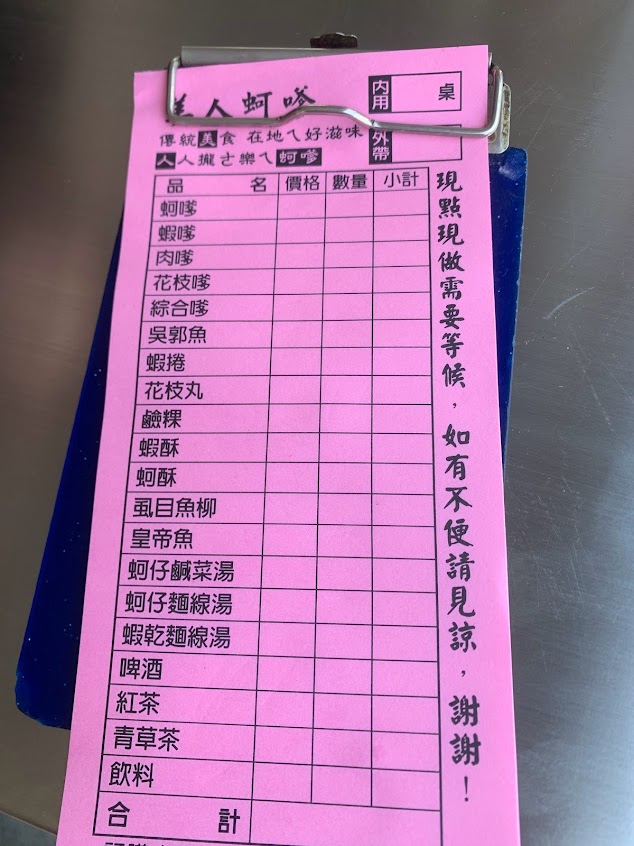 美人蚵嗲
內用 桌
外帶
傳統美食 在地ㄟ好滋味
人人攏ㄜ樂ㄟ蚵嗲
品名 價格 數量 小計
蚵嗲
蝦嗲
肉嗲
花枝嗲
綜合嗲
吳郭魚
蝦捲
花枝丸
鹼粿
蝦酥
蚵酥
虱目魚柳
皇帝魚
蚵仔鹹菜湯
蚵仔麵線湯
蝦乾麵線湯
啤酒
紅茶
青草茶
飲料
合計
現點現做需要等候，如有不便請見諒，謝謝！